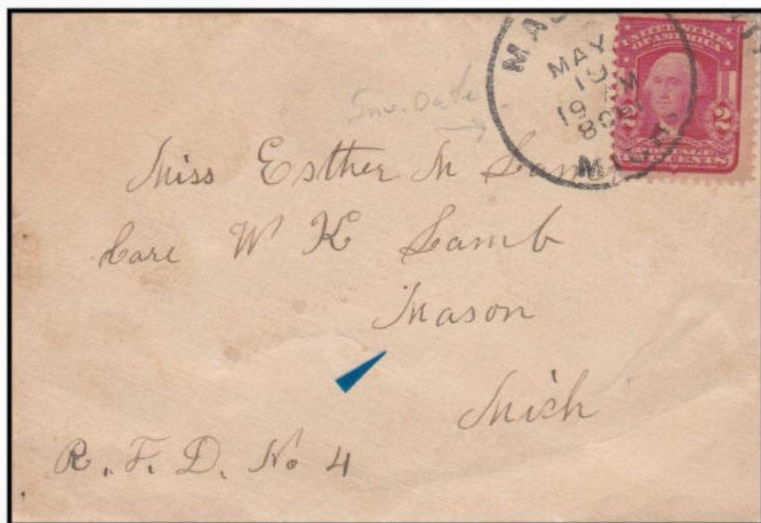 MAS
MAY
19
AM
1908
MICH.
UNITED STATES
OF AMERICA
2 2
TWO CENTS
Inv. Date
Miss Esther M Lamb
Care W K Lamb
Mason
Mich
R. F. D. No 4